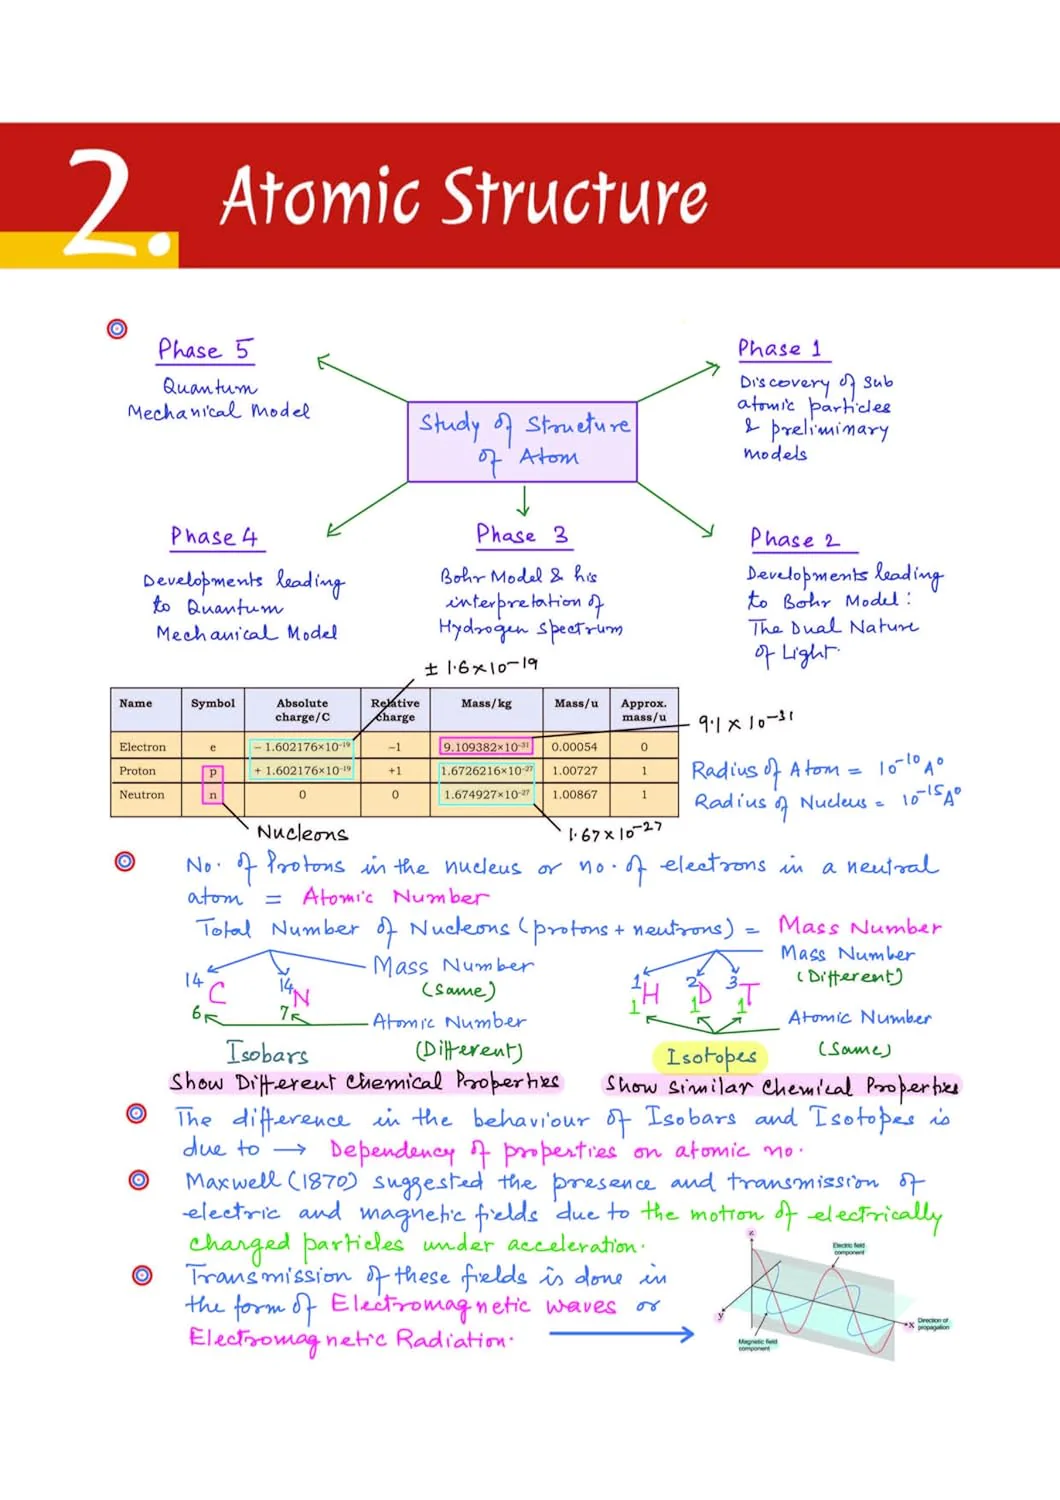 2. Atomic Structure
Phase 5
Quantum
Mechanical Model
Phase 1
Discovery of sub
atomic particles
& preliminary
models
Study of Structure
of Atom
Phase 4
Developments leading
to Quantum
Mechanical Model
Phase 3
Bohr Model & his
interpretation of
Hydrogen spectrum
Phase 2
Developments leading
to Bohr Model:
The Dual Nature
of Light.
± 1.6×10⁻¹⁹
Name Symbol Absolute charge/C Relative charge Mass/kg Mass/u Approx. mass/u
Electron e – 1.602176×10⁻¹⁹ –1 9.109382×10⁻³¹ 0.00054 0
Proton p + 1.602176×10⁻¹⁹ +1 1.6726216×10⁻²⁷ 1.00727 1
Neutron n 0 0 1.674927×10⁻²⁷ 1.00867 1
9.1 × 10⁻³¹
Radius of Atom = 10⁻¹⁰ A°
Radius of Nucleus = 10⁻¹⁵ A°
Nucleons
1.67 × 10⁻²⁷
No. of Protons in the nucleus or no. of electrons in a neutral
atom = Atomic Number
Total Number of Nucleons (protons + neutrons) = Mass Number
14 C 6
14 N 7
Mass Number
(Same)
Atomic Number
(Different)
Isobars
Show Different Chemical Properties
1 H 1
2 D 1
3 T 1
Mass Number
(Different)
Atomic Number
(Same)
Isotopes
Show Similar Chemical Properties
The difference in the behaviour of Isobars and Isotopes is
due to → Dependency of properties on atomic no.
Maxwell (1870) suggested the presence and transmission of
electric and magnetic fields due to the motion of electrically
charged particles under acceleration.
Transmission of these fields is done in
the form of Electromagnetic waves or
Electromagnetic Radiation.
z
Electric field
component
y
x
Direction of
propagation
Magnetic field
component